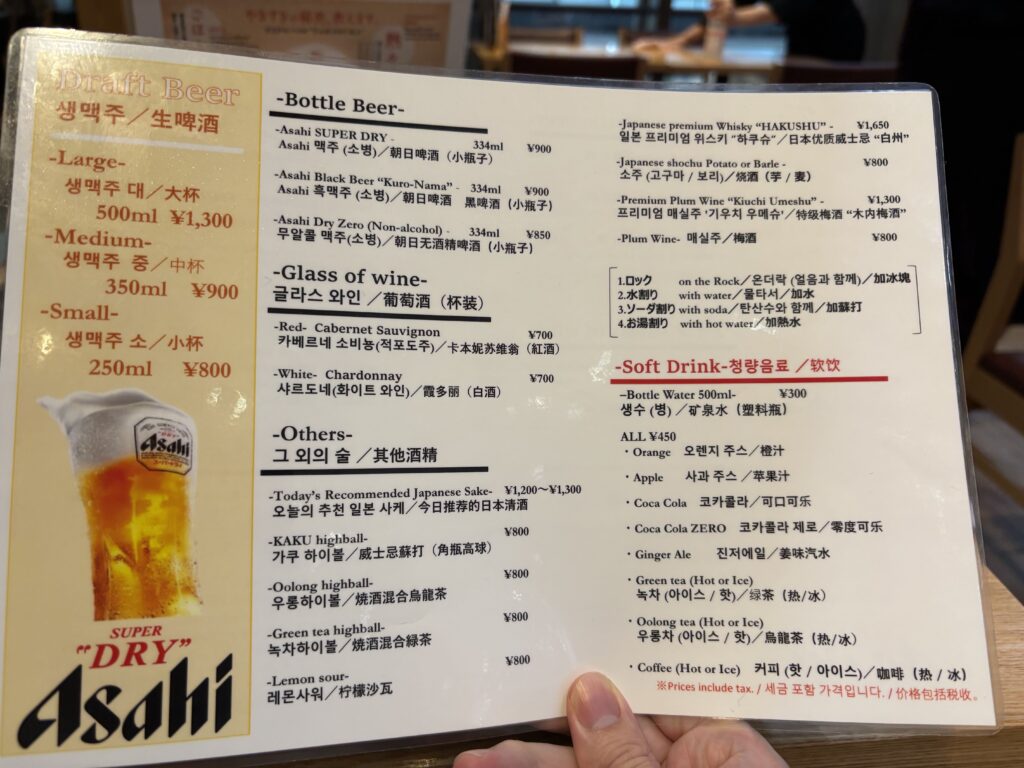 Draft Beer
생맥주／生啤酒
-Large-
생맥주 대／大杯
500ml ¥1,300
-Medium-
생맥주 중／中杯
350ml ¥900
-Small-
생맥주 소／小杯
250ml ¥800
Asahi
SUPER
"DRY"
Asahi
-Bottle Beer-
-Asahi SUPER DRY - 334ml ¥900
Asahi 맥주 (소병)／朝日啤酒（小瓶子）
-Asahi Black Beer "Kuro-Nama" - 334ml ¥900
Asahi 흑맥주 (소병)／朝日啤酒 黒啤酒（小瓶子）
-Asahi Dry Zero (Non-alcohol) - 334ml ¥850
무알콜 맥주(소병)／朝日无酒精啤酒（小瓶子）
-Glass of wine-
글라스 와인 ／葡萄酒（杯装）
-Red- Cabernet Sauvignon ¥700
카베르네 소비뇽(적포도주)／卡本妮苏维翁（紅酒）
-White- Chardonnay ¥700
샤르도네(화이트 와인)／霞多丽（白酒）
-Others-
그 외의 술 ／其他酒精
-Today's Recommended Japanese Sake- ¥1,200～¥1,300
오늘의 추천 일본 사케／今日推荐的日本清酒
-KAKU highball- ¥800
가쿠 하이볼／威士忌蘇打（角瓶高球）
-Oolong highball- ¥800
우롱하이볼／焼酒混合烏龍茶
-Green tea highball- ¥800
녹차하이볼／焼酒混合緑茶
-Lemon sour- ¥800
레몬사워／柠檬沙瓦
-Japanese premium Whisky "HAKUSHU" - ¥1,650
일본 프리미엄 위스키 "하쿠슈"／日本优质威士忌 "白州"
-Japanese shochu Potato or Barle - ¥800
소주 (고구마 / 보리)／烧酒（芋 / 麦）
-Premium Plum Wine "Kiuchi Umeshu" - ¥1,300
프리미엄 매실주 '기우치 우메슈'／特级梅酒 "木内梅酒"
-Plum Wine- 매실주／梅酒 ¥800
1.ロック on the Rock／온더락 (얼음과 함께)／加冰塊
2.水割り with water／물타서／加水
3.ソーダ割り with soda／탄산수와 함께／加蘇打
4.お湯割り with hot water／加熱水
-Soft Drink-청량음료 ／软饮
-Bottle Water 500ml- ¥300
생수 (병) ／矿泉水（塑料瓶）
ALL ¥450
・Orange 오렌지 주스／橙汁
・Apple 사과 주스 ／苹果汁
・Coca Cola 코카콜라／可口可乐
・Coca Cola ZERO 코카콜라 제로／零度可乐
・Ginger Ale 진저에일／姜味汽水
・Green tea (Hot or Ice)
녹차 (아이스 / 핫)／绿茶（热/冰）
・Oolong tea (Hot or Ice)
우롱차 (아이스 / 핫)／烏龍茶（热/冰）
・Coffee (Hot or Ice) 커피 (핫 / 아이스)／咖啡（热 / 冰）
※Prices include tax. / 세금 포함 가격입니다. / 价格包括税收。